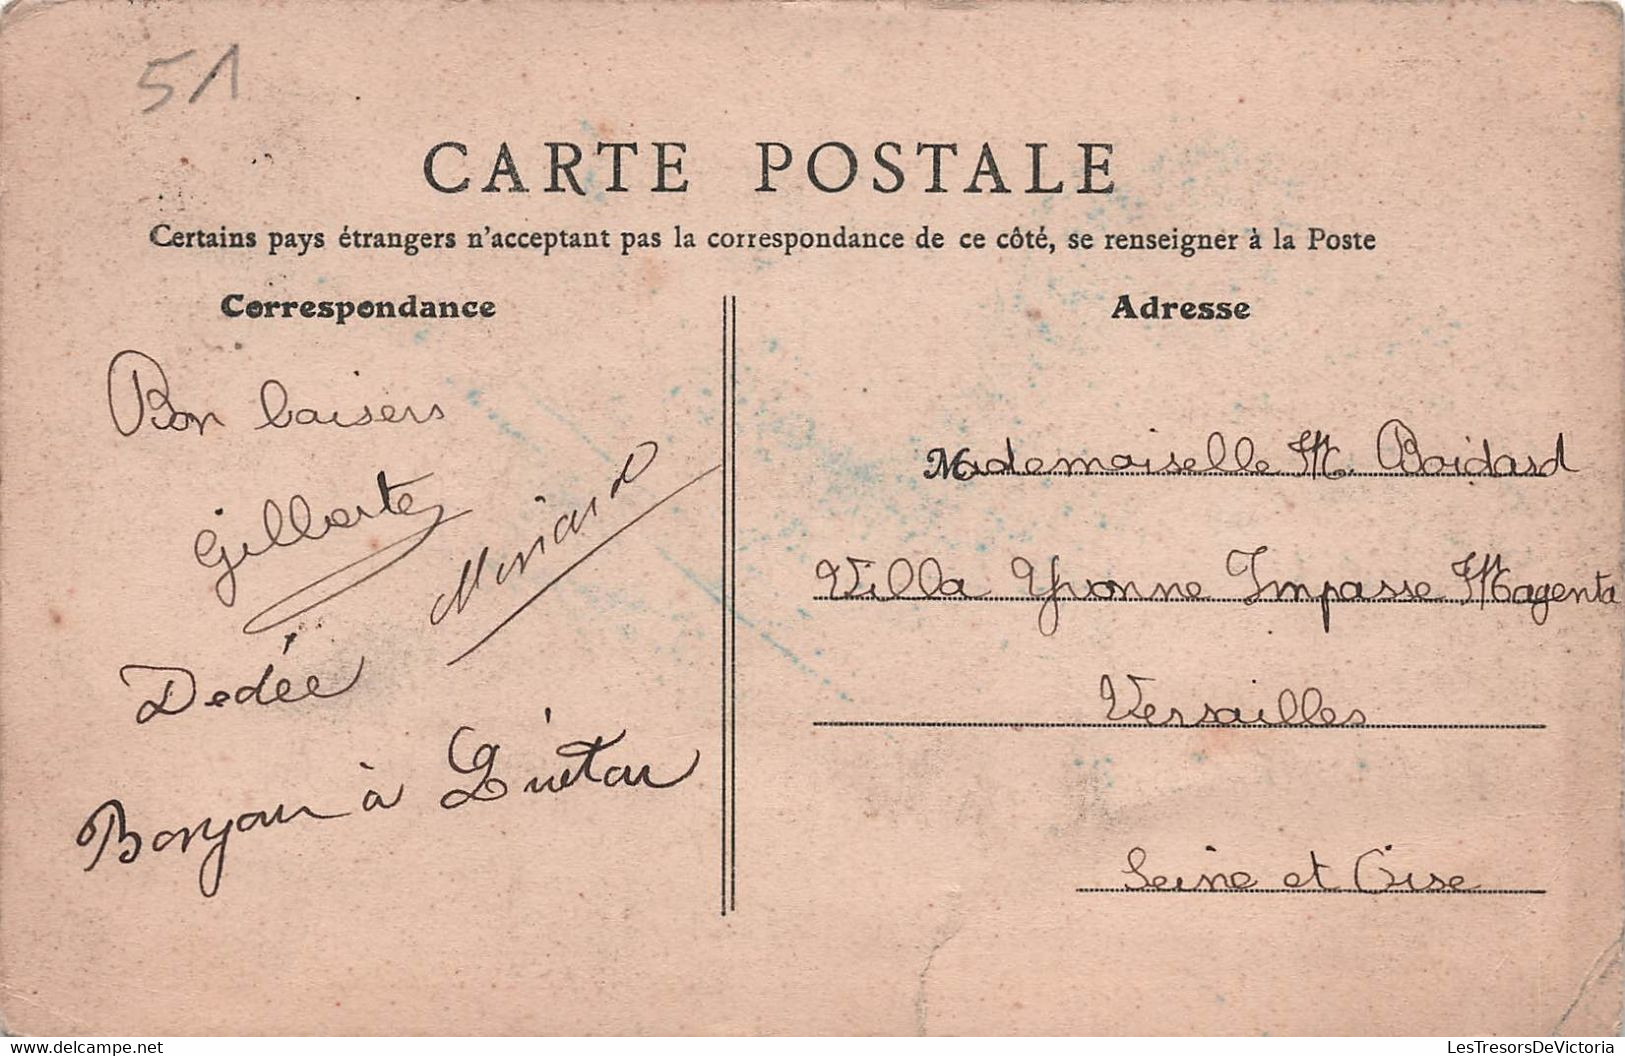 51
CARTE POSTALE
Certains pays étrangers n'acceptant pas la correspondance de ce côté, se renseigner à la Poste
Correspondance
Bon baisers
Gilberte
Meriard
Dedée
Bonjour à
Adresse
Mademoiselle M. Boidard
Villa Yvonne Impasse Magenta
Versailles
Seine et Oise
delcampe.net
LesTresorsDeVictoria